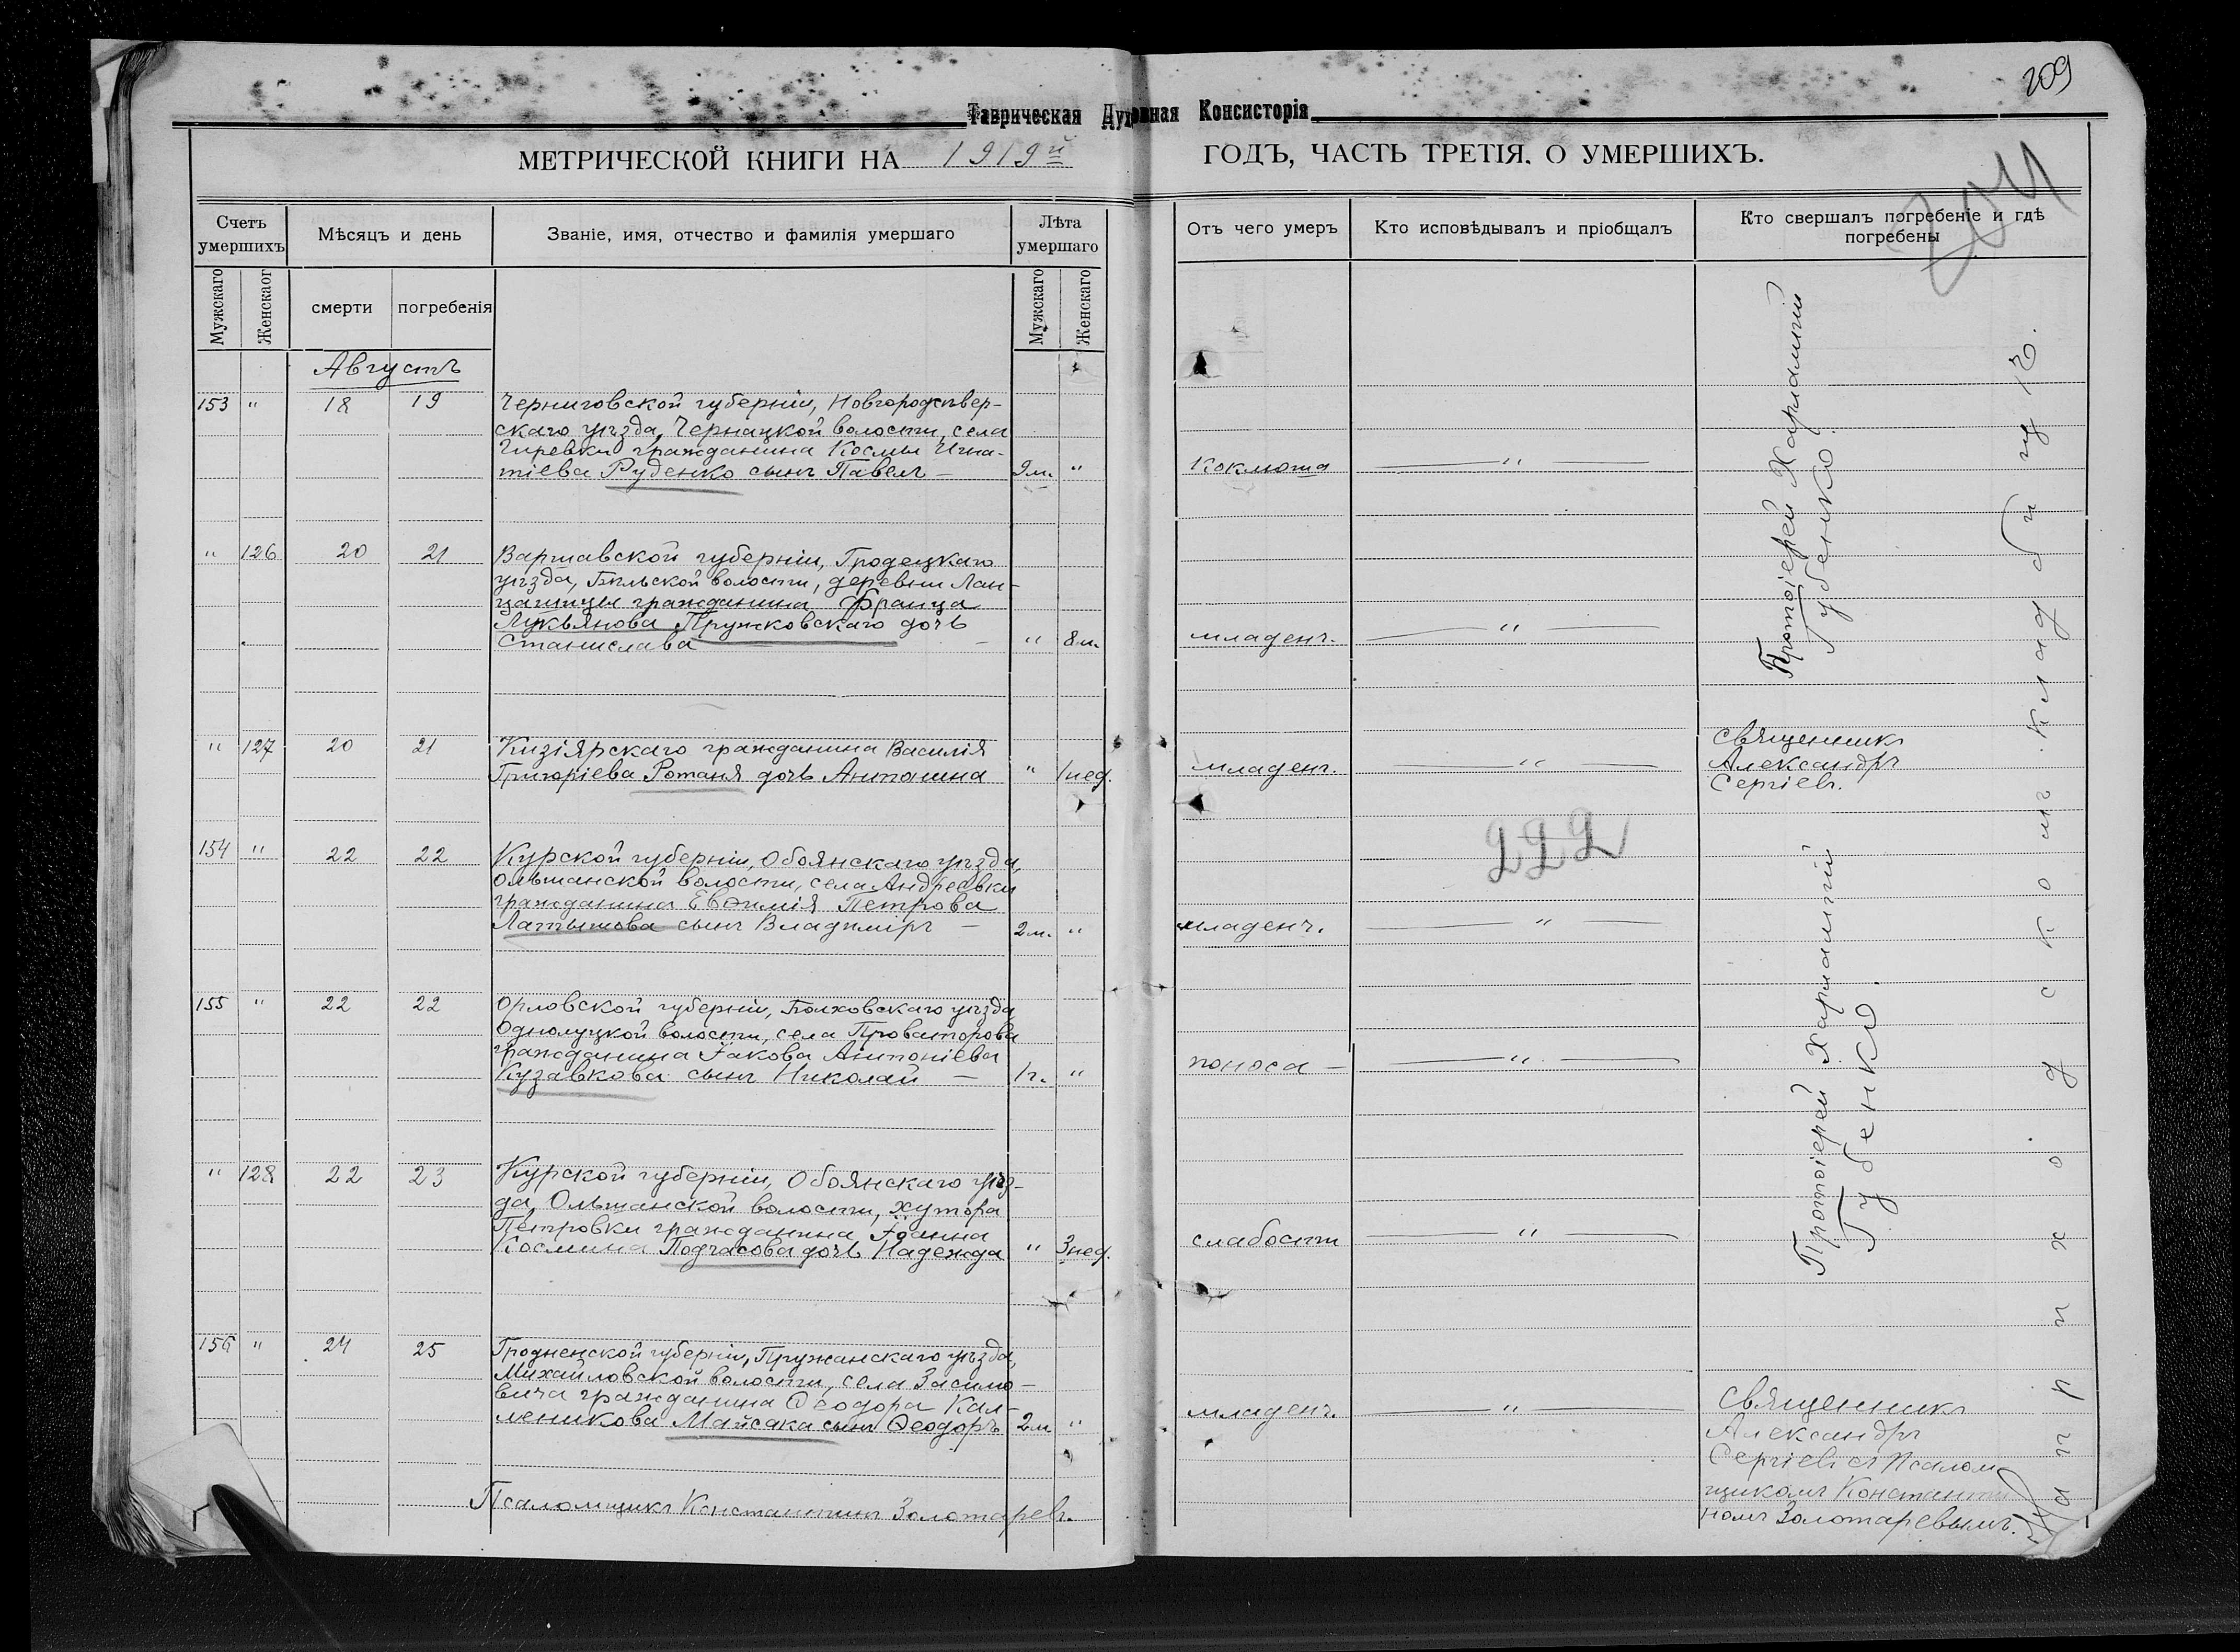 209
Таврическая Духовная Консисторія
МЕТРИЧЕСКОЙ КНИГИ НА 1919й ГОДЪ, ЧАСТЬ ТРЕТІЯ. О УМЕРШИХЪ.
204
Счетъ умершихъ
Мѣсяцъ и день
Званіе, имя, отчество и фамилія умершаго
Лѣта умершаго
Отъ чего умеръ
Кто исповѣдывалъ и пріобщалъ
Кто свершалъ погребеніе и гдѣ погребены
Мужскаго
Женскаог
смерти
погребенія
Мужскаго
Женскаго
Августъ
153 " 18 19 Черниговской губерніи, Новгородсѣвер-
скаго уѣзда, Чернацкой волости, села
Чиревки гражданина Космы Игна-
тіева Руденко сынъ Павелъ — 9 м. " коклюша — " —
Протоіерей Харлампій
Губенко.
" 126 20 21 Варшавской губерніи, Гродецкаго
уѣзда, Бѣльской волости, деревни Лан-
цашицы гражданина Франца
Лукьянова Пружковскаго дочь
Станислава — " 8 м. младенч. — " —
" 127 20 21 Кизіярскаго гражданина Василія
Григоріева Ротаня дочь Антонина " 1 нед. младенч. — " —
Священникъ
Александръ
Сергіевъ.
222
154 " 22 22 Курской губерніи, Обоянскаго уѣзда,
Ольшанской волости, села Андреевки
гражданина Евѳимія Петрова
Латышова сынъ Владиміръ — 2 м. " младенч. — " —
155 " 22 22 Орловской губерніи, Болховскаго уѣзда
Однолуцкой волости, села Проваторова
гражданина Іакова Антоніева
Кузавкова сынъ Николай — 1 г. " поноса — — " —
Протоіерей Харлампій
Губенко.
" 128 22 23 Курской губерніи, Обоянскаго уѣз-
да, Ольшанской волости, хутора
Петровки гражданина Іоанна
Космина Подчасова дочь Надежда " 3 нед. слабости — " —
156 " 24 25 Гродненской губерніи, Пружанскаго уѣзда,
Михайловской волости, села Засимо-
вича гражданина Ѳеодора Кал-
леникова Майсака сынъ Ѳеодоръ 2 м " младенч. — " —
Священникъ
Александръ
Сергіевъ съ Псалом
щикомъ Константи
номъ Золотаревымъ.
приходскомъ кладбищѣ.
Псаломщикъ Константинъ Золотаревъ.